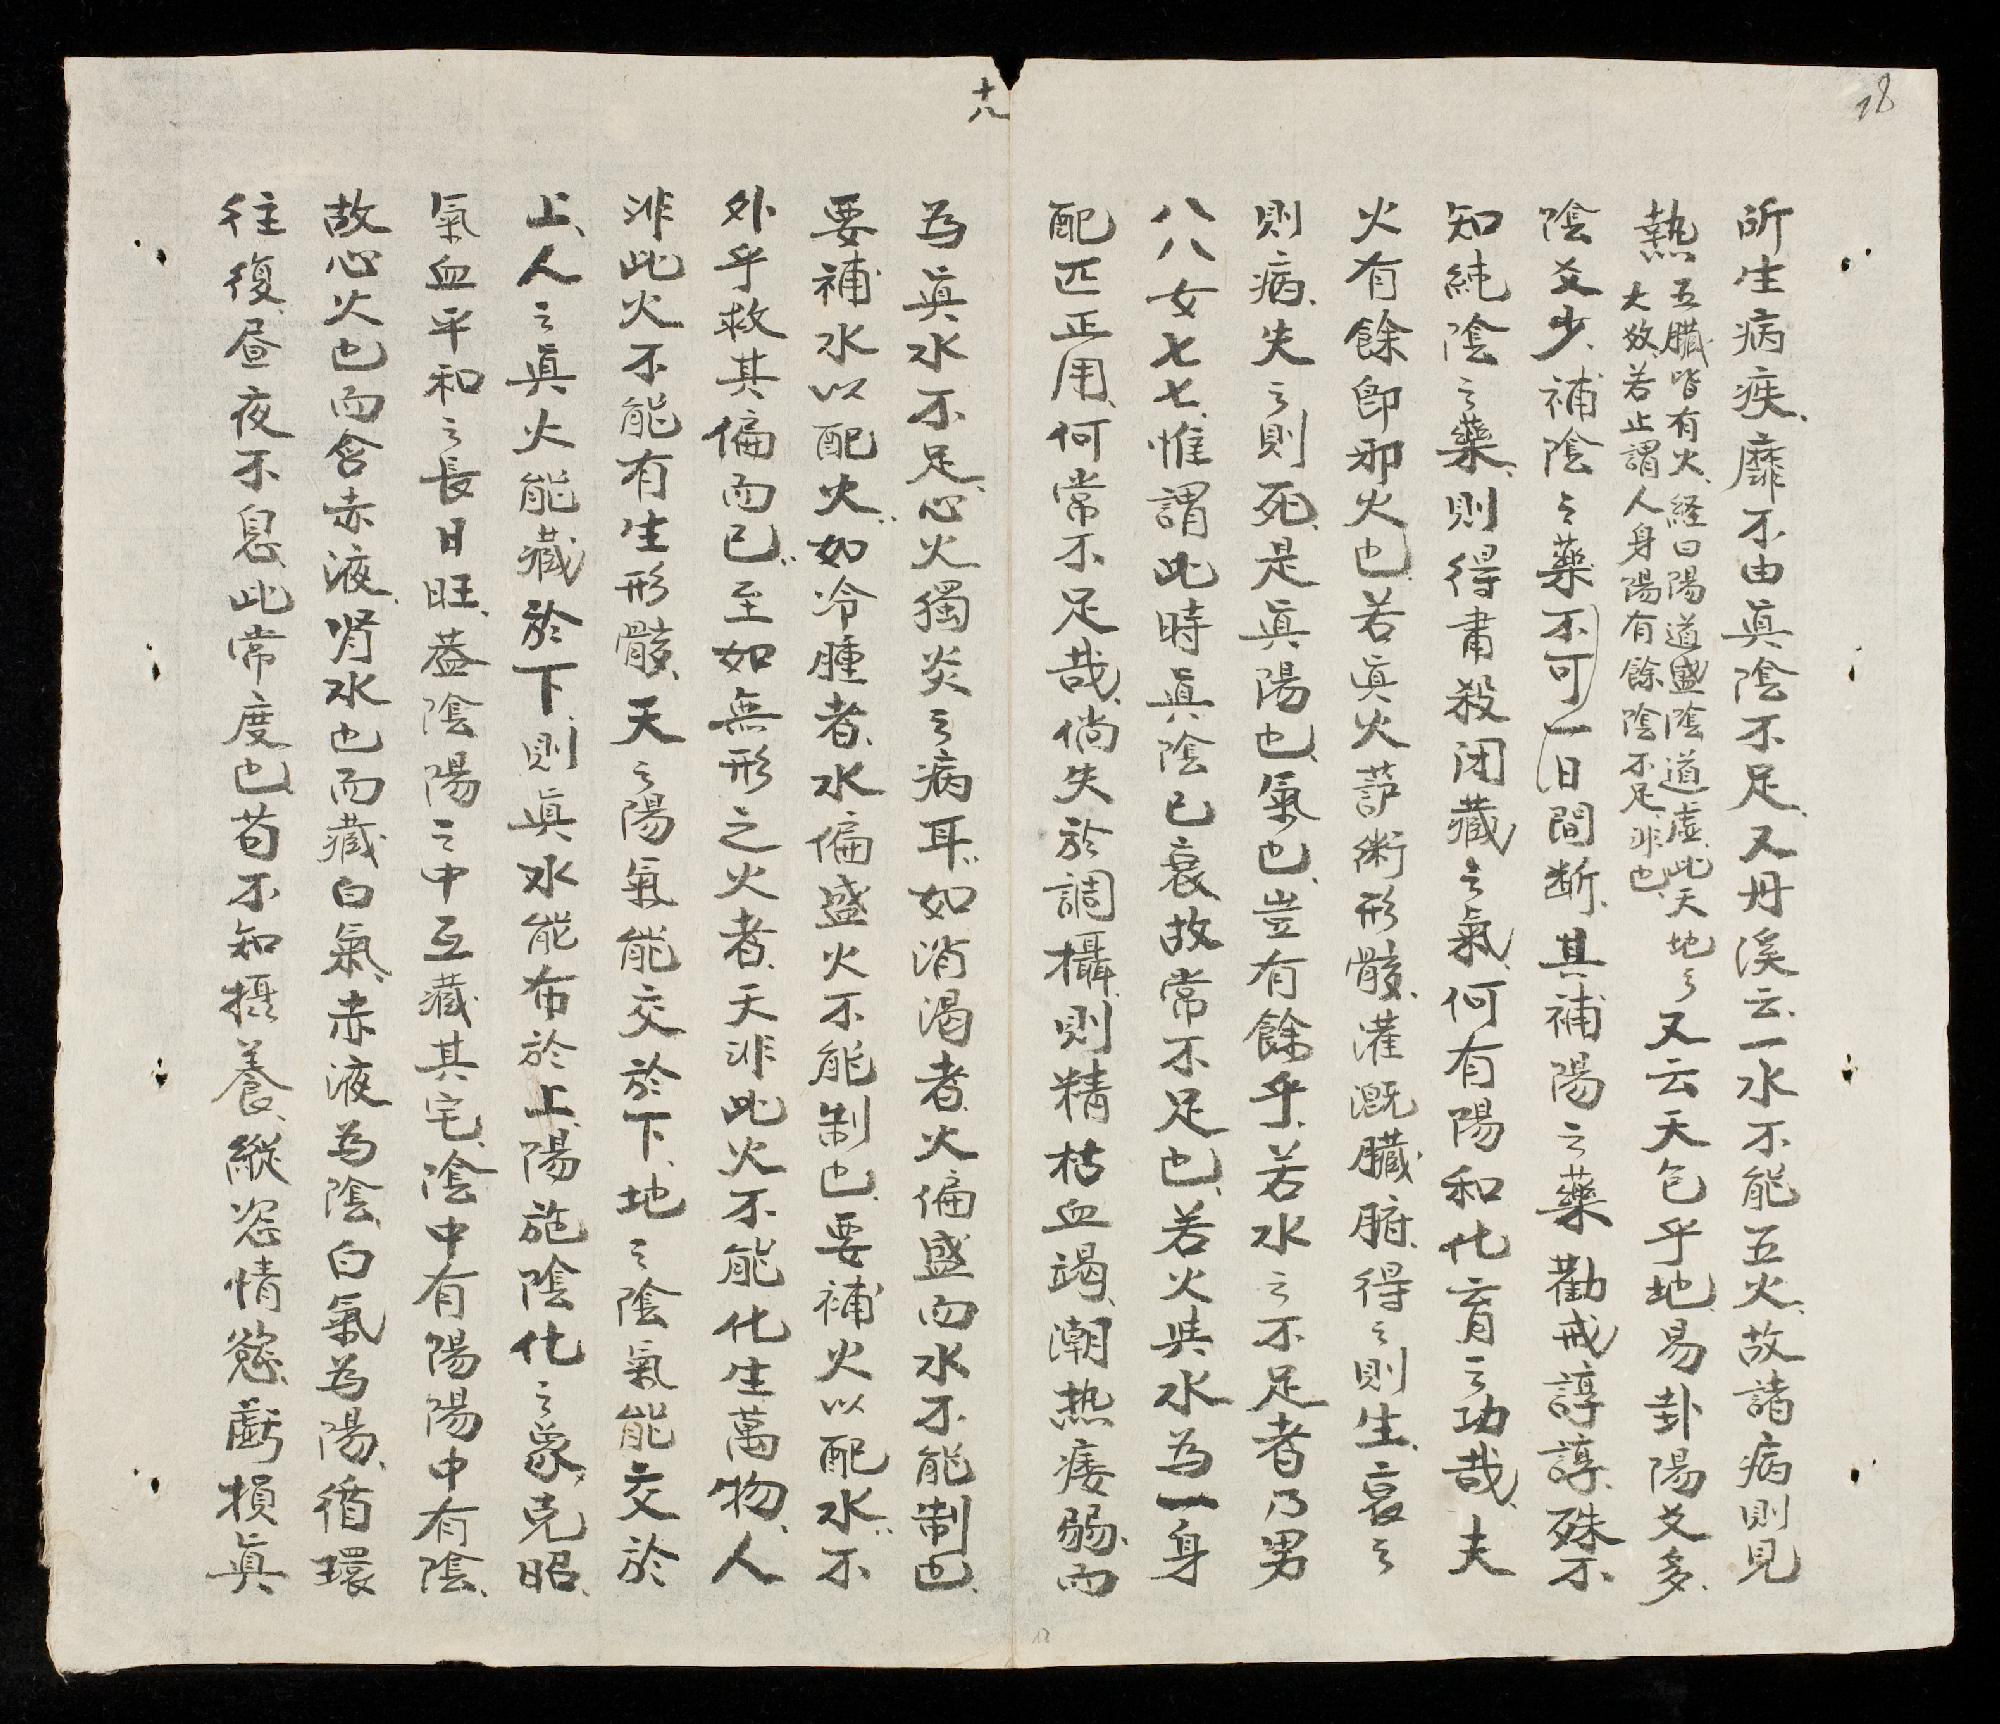 18
十八
所生病疾、靡不由眞陰不足、又丹溪云、一水不能五火、故諸病則見
熱
五臟皆有火、経曰陽道盛陰道虚、此天地之
大效、若止謂人身陽有餘陰不足、非也、
又云天包乎地、易卦陽爻多、
陰爻少、補陰之藥不可一日間断、其補陽之藥勸戒諄諄、殊不
知純陰之藥、則得肅殺闭藏之氣、何有陽和化育之功哉、夫
火有餘卽邪火也、若眞火葫術形骸、灌溉臟腑、得之則生、衰之
則病、失之則死、是眞陽也、氣也、豈有餘乎、若水之不足者乃男
八八女七七、惟謂此時眞陰已衰故常不足也、若火與水為一身
配匹正用、何常不足哉、倘失於調攝、則精枯血竭、潮热痿弱、而
為眞水不足、心火獨炎之病耳、如消渴者、火偏盛而水不能制也、
要補水以配火、如冷腫者、水偏盛火不能制也、要補火以配水、不
外乎救其偏而已、至如無形之火者、天非此火不能化生萬物、人
非此火不能有生形骸、天之陽氣能交於下、地之陰氣能交於
上、人之眞火能藏於下、則眞水能布於上、陽施陰化之象、克昭、
氣血平和之長日旺、蓋陰陽之中互藏其宅、陰中有陽陽中有陰、
故心火也而含赤液、腎水也而藏白氣、赤液為陰、白氣為陽、循環
往復、昼夜不息、此常度也、苟不知摂養、縱恣情慾、虧損眞